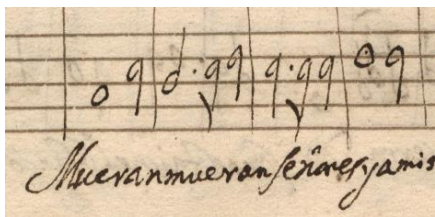 Mueran mueran señores y amis